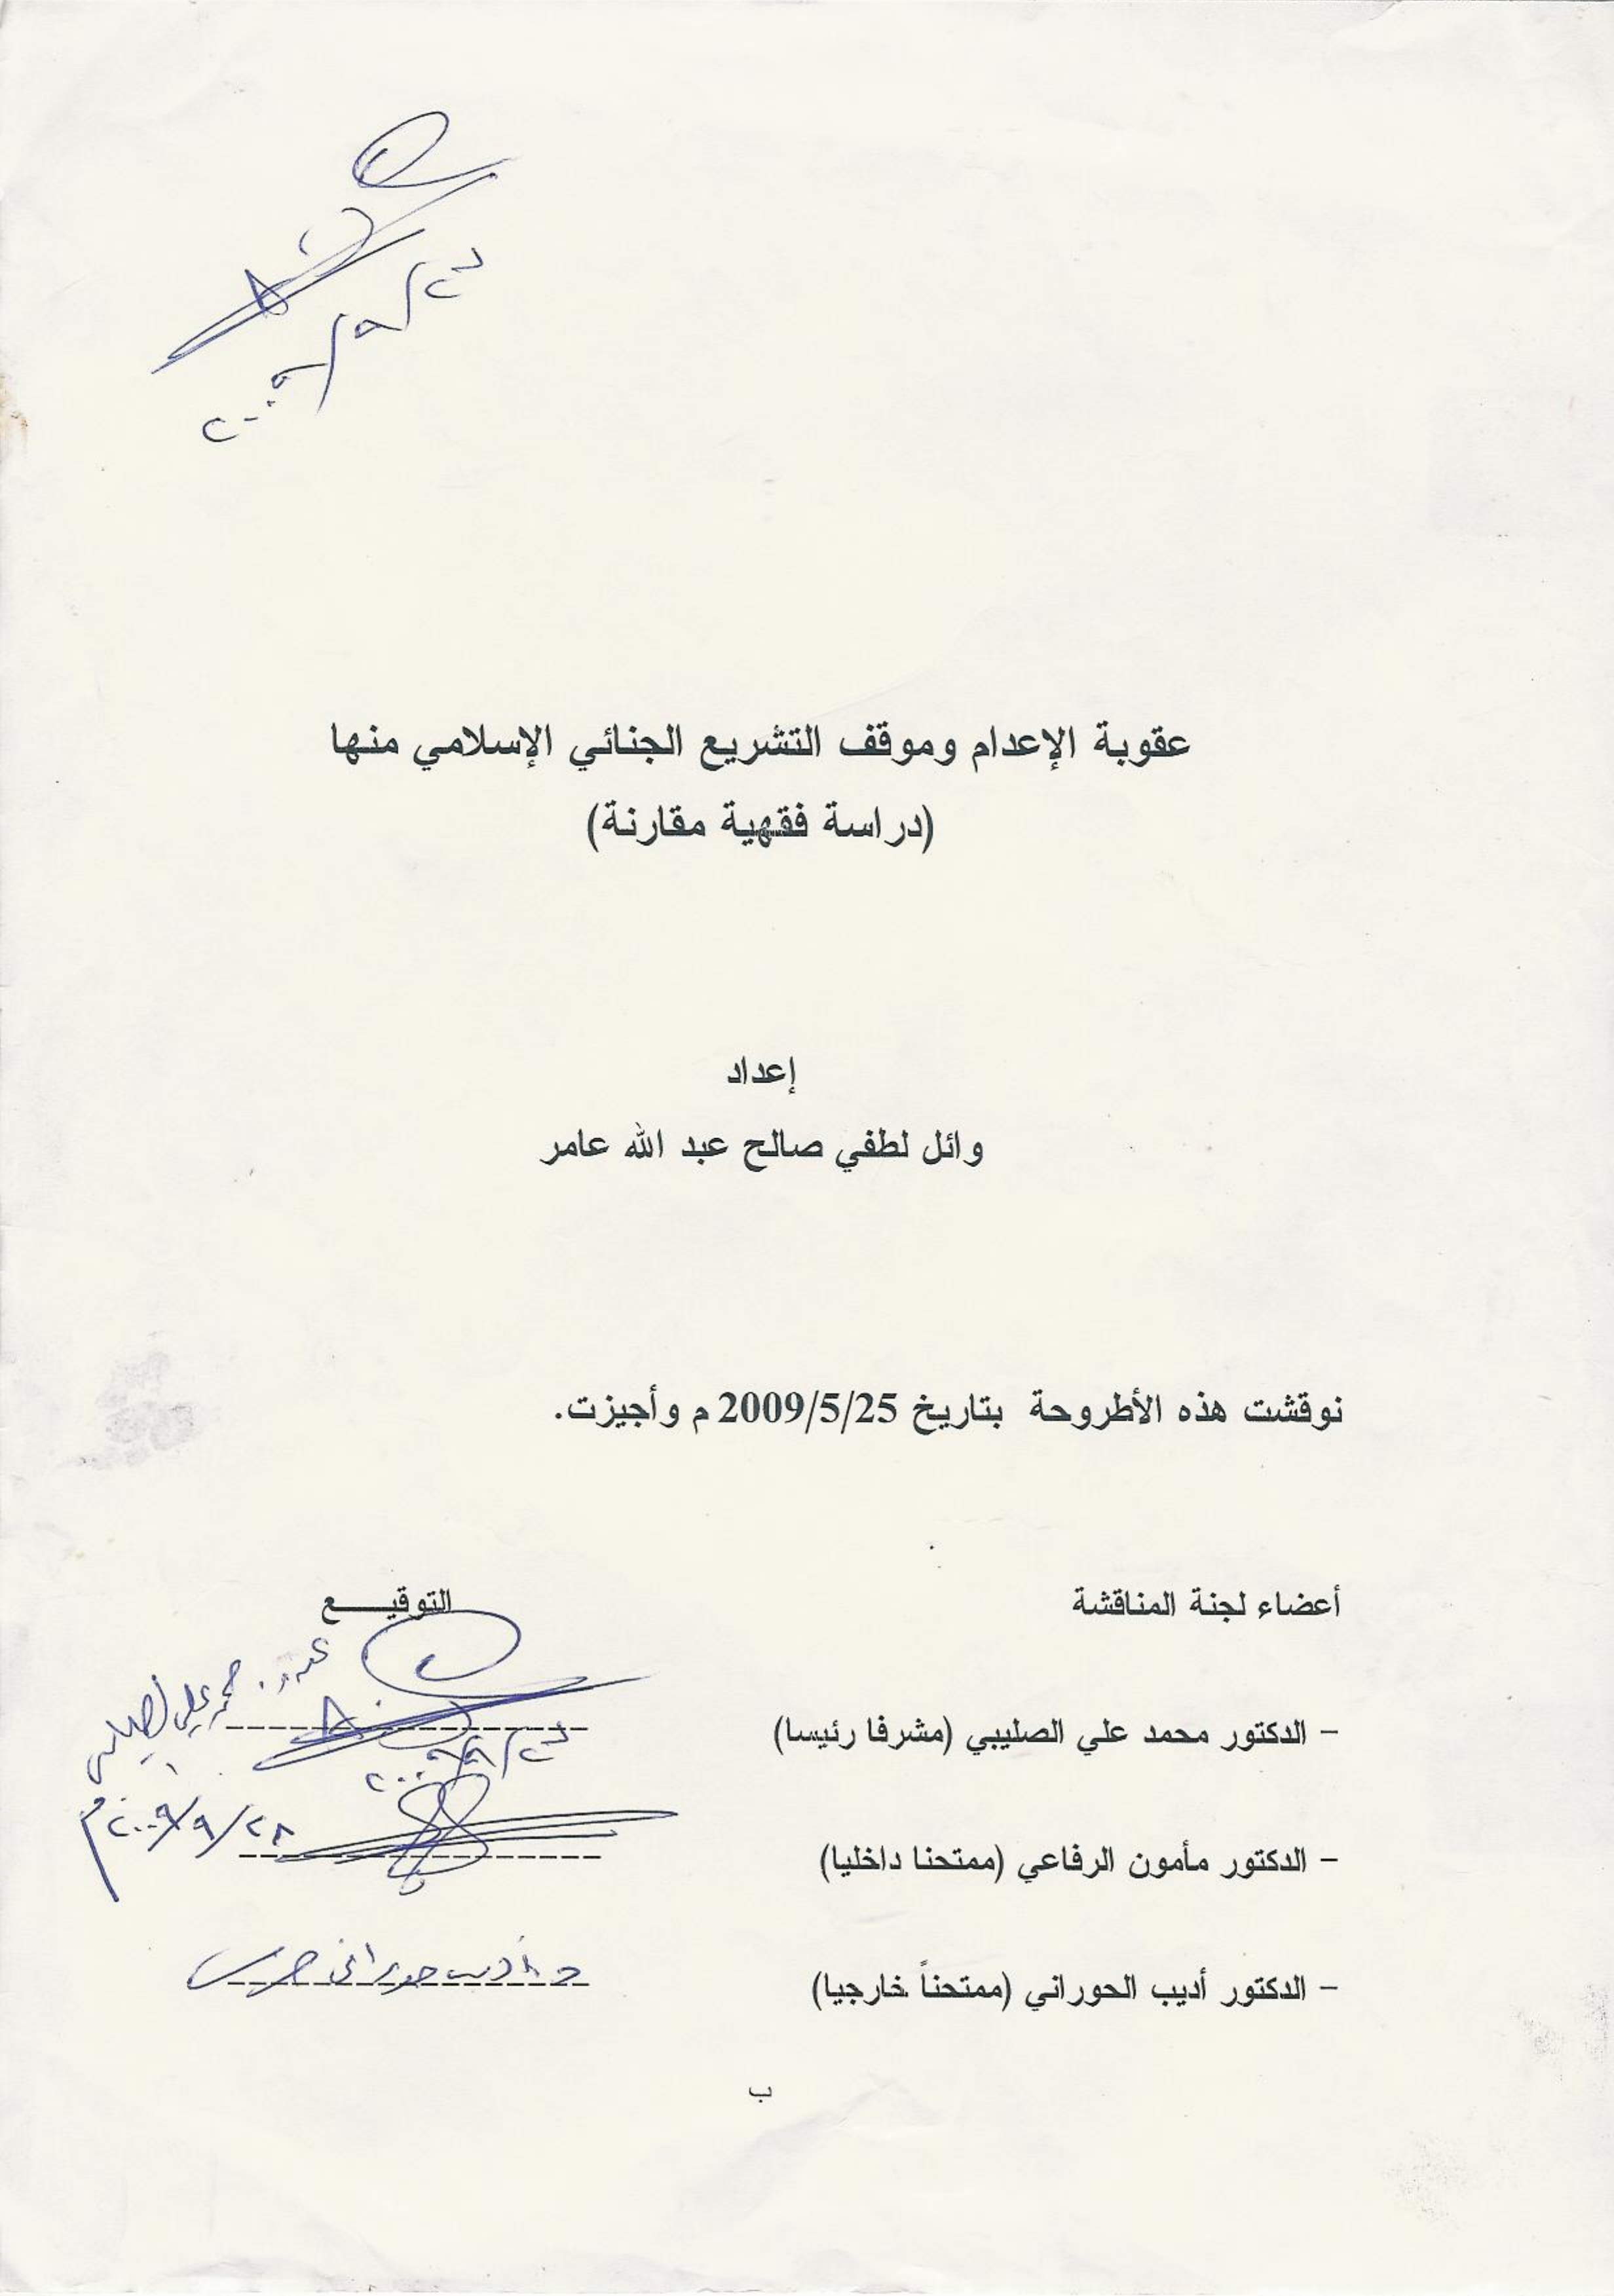 عقوبة الإعدام وموقف التشريع الجنائي الإسلامي منها
(دراسة فقهية مقارنة)
إعداد
وائل لطفي صالح عبد الله عامر
نوقشت هذه الأطروحة بتاريخ 2009/5/25 م وأجيزت.
أعضاء لجنة المناقشة التوقيـــــع
- الدكتور محمد علي الصليبي (مشرفا رئيسا)
محمد علي الصليبي
- الدكتور مأمون الرفاعي (ممتحنا داخليا)
٢٨/٩/٢٠٠٩م
- الدكتور أديب الحوراني (ممتحناً خارجيا)
ب